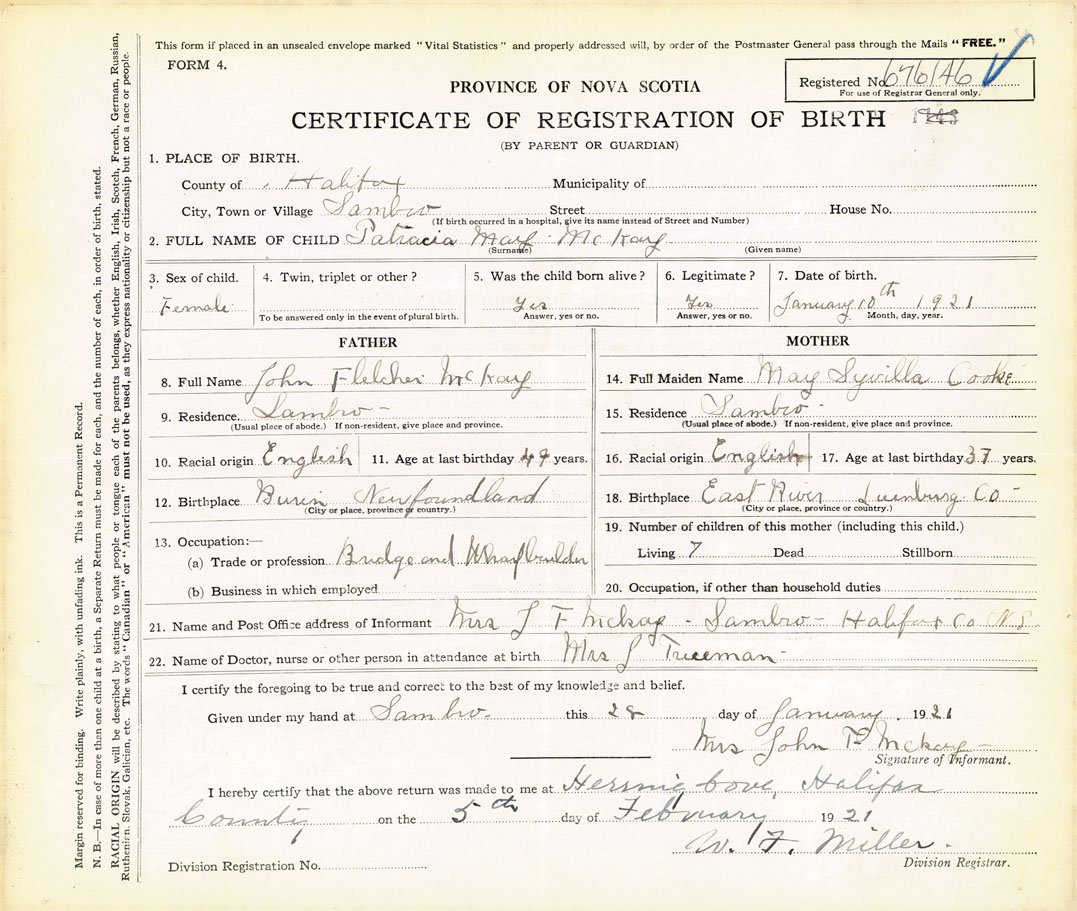 This form if placed in an unsealed envelope marked "Vital Statistics" and properly addressed will, by order of the Postmaster General pass through the Mails "FREE."
FORM 4.
Registered No. 676146
For use of Registrar General only.
PROVINCE OF NOVA SCOTIA
CERTIFICATE OF REGISTRATION OF BIRTH
(BY PARENT OR GUARDIAN)
1. PLACE OF BIRTH.
County of Halifax Municipality of
City, Town or Village Sambro Street House No.
(If birth occurred in a hospital, give its name instead of Street and Number)
2. FULL NAME OF CHILD Patracia May McKay
(Surname) (Given name)
3. Sex of child. 4. Twin, triplet or other? 5. Was the child born alive? 6. Legitimate? 7. Date of birth.
Female Yes Yes January 10th 1921
To be answered only in the event of plural birth. Answer, yes or no. Answer, yes or no. Month, day, year.
FATHER
8. Full Name John Fletcher McKay
9. Residence. Sambro -
(Usual place of abode.) If non-resident, give place and province.
10. Racial origin English 11. Age at last birthday 49 years.
12. Birthplace Burin Newfoundland
(City or place, province or country.)
13. Occupation:—
(a) Trade or profession Bridge and Wharfbuilder
(b) Business in which employed
MOTHER
14. Full Maiden Name May Syvilla Cooke
15. Residence Sambro -
(Usual place of abode.) If non-resident, give place and province.
16. Racial origin English 17. Age at last birthday 37 years.
18. Birthplace East River Luenburg Co -
(City or place, province or country.)
19. Number of children of this mother (including this child.)
Living 7 Dead Stillborn
20. Occupation, if other than household duties
21. Name and Post Office address of Informant Mrs J F Mckay - Sambro - Halifax Co N.S.
22. Name of Doctor, nurse or other person in attendance at birth Mrs J Trueman -
I certify the foregoing to be true and correct to the best of my knowledge and belief.
Given under my hand at Sambro - this 28 day of January 1921
Mrs John F Mckay -
Signature of Informant.
I hereby certify that the above return was made to me at Herring Cove, Halifax
County on the 5th day of February 1921
W. F. Miller.
Division Registrar.
Division Registration No.
Margin reserved for binding. Write plainly, with unfading ink. This is a Permanent Record.
N. B.—In case of more than one child at a birth, a Separate Return must be made for each, and the number of each, in order of birth, stated.
RACIAL ORIGIN will be described by stating to what people or tongue each of the parents belongs, whether English, Irish, Scotch, French, German, Russian,
Ruthenian, Slovak, Galician, etc. The words "Canadian" or "American" must not be used, as they express nationality or citizenship but not a race or people.